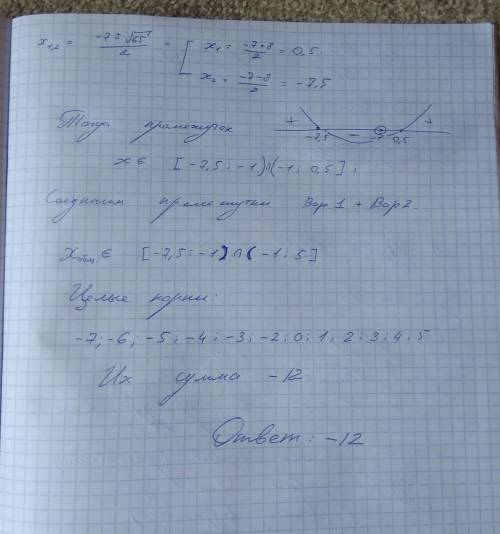 x₁,₂ = (-7 ± √65)/2 = [ x₁ = (-7+8)/2 = 0,5
x₂ = (-7-8)/2 = -7,5
Тогда промежуток
+ - +
-7,5 -1 0,5
x ∈ [-7,5 ; -1)∩(-1 ; 0,5] ;
Соединим промежутки Вар 1 + Вар 2.
Xобщ ∈ [-7,5 ; -1) ∩ (-1 ; 5]
Целые корни:
-7 ; -6 ; -5 ; -4 ; -3 ; -2 ; 0 ; 1 ; 2 ; 3 ; 4 ; 5
Их сумма -12
Ответ: -12